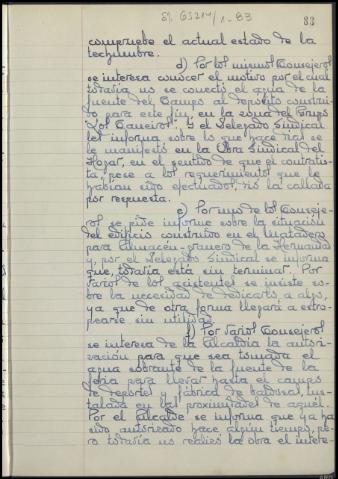 83
compruebe el actual estado de la
techumbre.
d) Por los mismos Consejeros
se interesa conocer el motivo por el cual
todavía no se conectó el agua de la
fuente del Campo al depósito construi-
do para este fin, en la zona del Grupo
"Los Caneiros". Y el Delegado Sindical
les informa sobre lo que hace días se
le manifestó en la Obra Sindical del
Hogar, en el sentido de que el contratis-
ta, pese a los requerimientos que le
habían sido efectuados, dió la callada
por respuesta.
e) Por uno de los Conseje-
ros se pide informe sobre la situación
del edificio construido en el Matadero
para Almacén-granero de la Hermandad
y, por el Delegado Sindical se informa
que, todavía está sin terminar. Por
varios de los asistentes se insiste so-
bre la necesidad de dedicarlo a algo,
ya que de otra forma llegará a estro-
pearse sin utilidad.
f) Por varios Consejeros
se interesa de la Alcaldía la autori-
zación para que sea tomada el
agua sobrante de la fuente de la
feria para llevar hasta el campo
de deportes y fábrica de gaseosas, ins-
talada en las proximidades de aquél.
Por el Alcalde se informa que ya ha
sido autorizado hace algún tiempo, pe-
ro todavía no realizó la obra el intere-